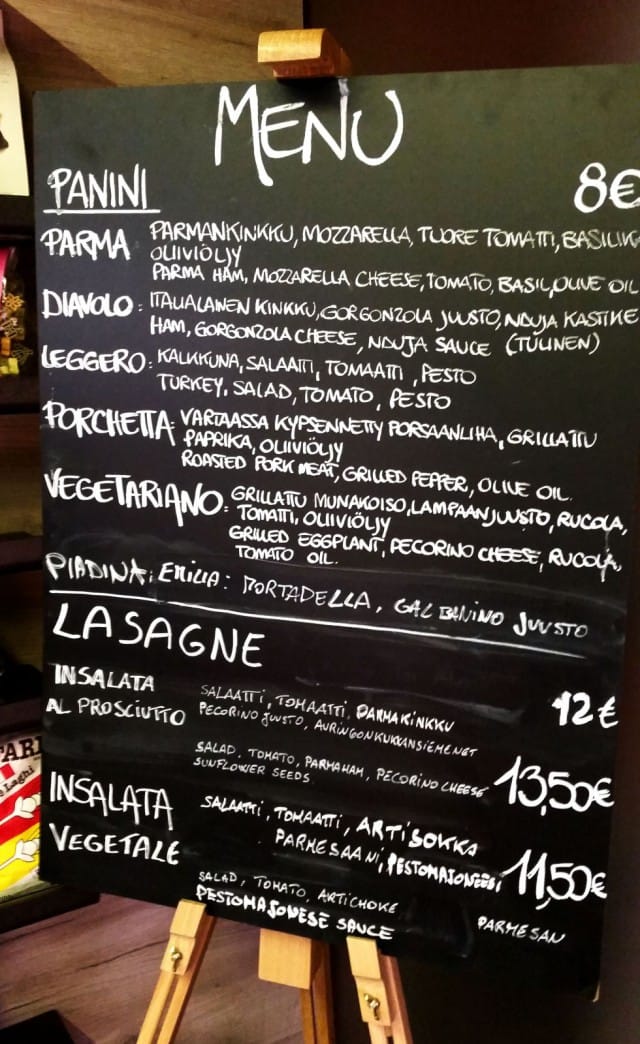 MENU
PANINI 8€
PARMA PARMANKINKKU, MOZZARELLA, TUORE TOMATTI, BASILIKA
OLIIVIÖLJY
PARMA HAM, MOZZARELLA CHEESE, TOMATO, BASIL, OLIVE OIL
DIAVOLO: ITALIALAINEN KINKKU, GORGONZOLA JUUSTO, NDUJA KASTIKE
HAM, GORGONZOLA CHEESE, NDUJA SAUCE (TULINEN)
LEGGERO: KALKKUNA, SALAATTI, TOMAATTI, PESTO
TURKEY, SALAD, TOMATO, PESTO
PORCHETTA: VARTAASSA KYPSENNETTY PORSAANLIHA, GRILLATTU
PAPRIKA, OLIIVIÖLJY
ROASTED PORK MEAT, GRILLED PEPPER, OLIVE OIL.
VEGETARIANO: GRILLATTU MUNAKOISO, LAMPAANJUUSTO, RUCOLA,
TOMATTI, OLIIVIÖLJY
GRILLED EGGPLANT, PECORINO CHEESE, RUCOLA,
TOMATO OIL.
PIADINA: EMILIA: MORTADELLA, GALBANINO JUUSTO
LASAGNE 12€
INSALATA
AL PROSCIUTTO
SALAATTI, TOMAATTI, PARMAKINKKU
PECORINO JUUSTO, AURINGONKUKKANSIEMENET
SALAD, TOMATO, PARMAHAM, PECORINO CHEESE 13,50€
SUNFLOWER SEEDS
INSALATA
VEGETALE
SALAATTI, TOMAATTI, ARTISOKKA
PARMESAANI, PESTOMAJONEESI 11,50€
SALAD, TOMATO, ARTICHOKE PARMESAN
PESTOMAJONESE SAUCE